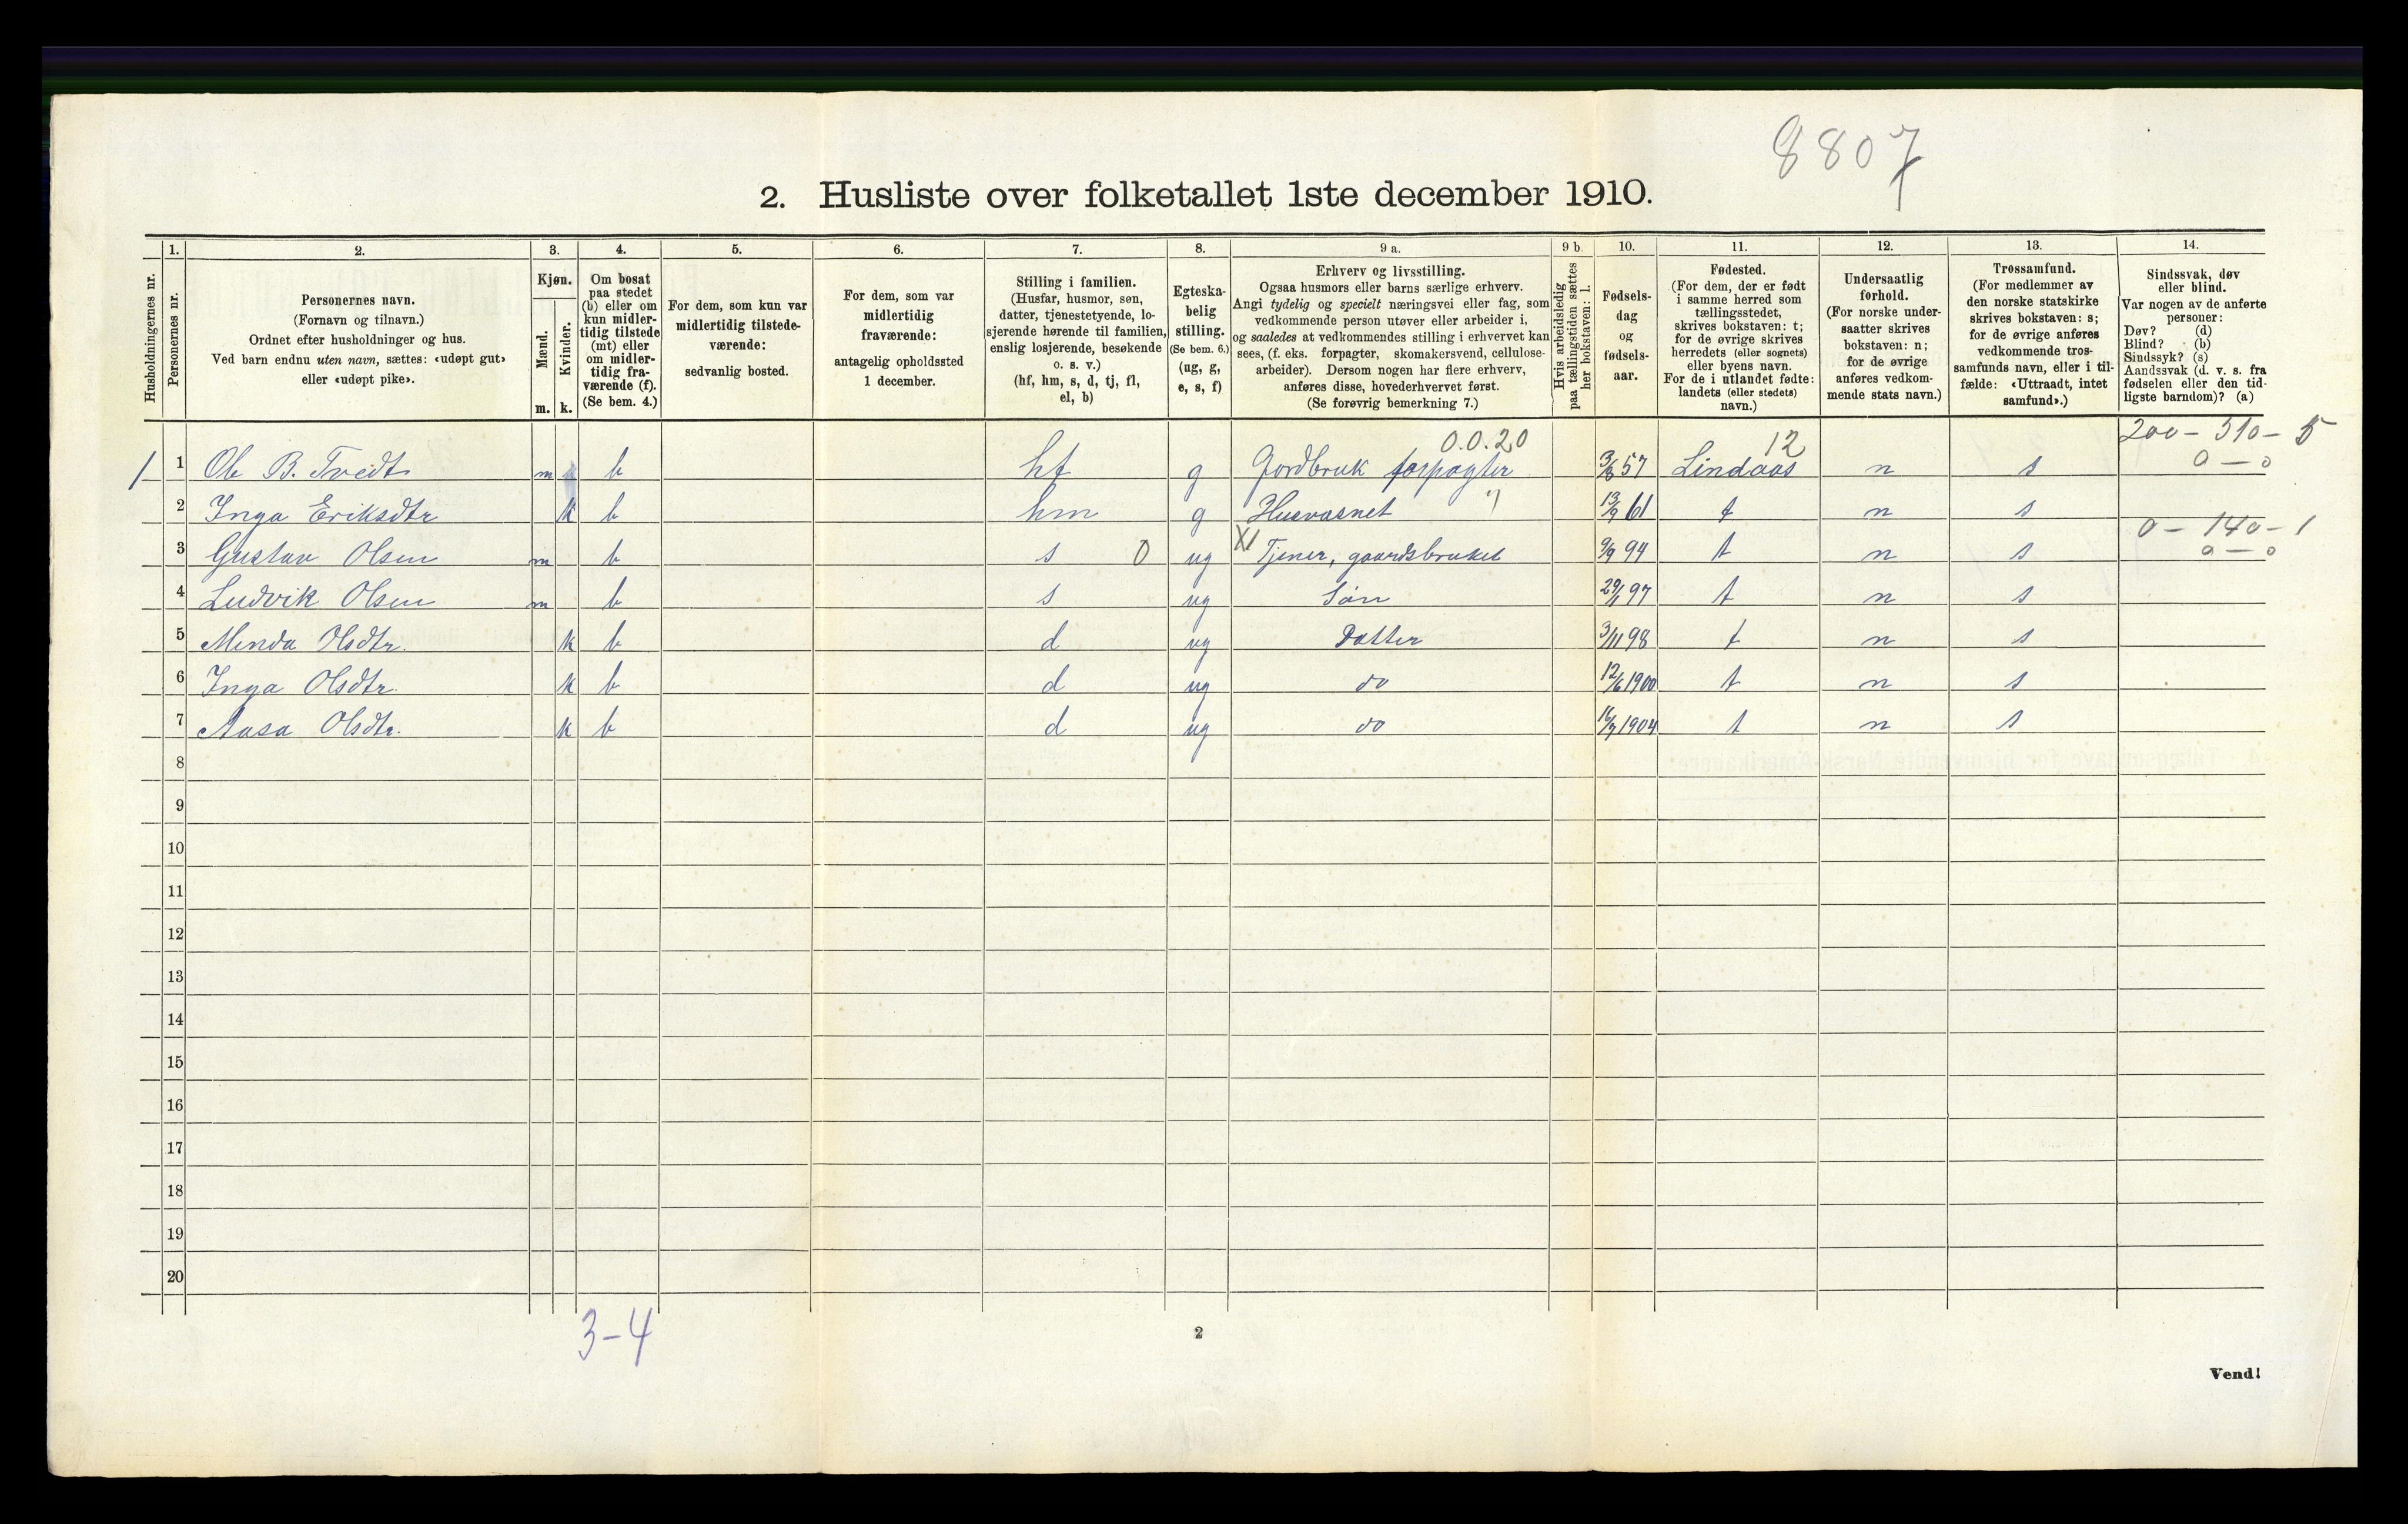 8807
2. Husliste over folketallet 1ste december 1910.
Husholdningernes nr.
1.
Personernes nr.
2.
Personernes navn.
(Fornavn og tilnavn.)
Ordnet efter husholdninger og hus.
Ved barn endnu uten navn, sættes: «udøpt gut»
eller «udøpt pike».
3.
Kjøn.
Mænd.
Kvinder.
m. k.
4.
Om bosat
paa stedet
(b) eller om
kun midler-
tidig tilstede
(mt) eller
om midler-
tidig fra-
værende (f).
(Se bem. 4.)
5.
For dem, som kun var
midlertidig tilstede-
værende:
sedvanlig bosted.
6.
For dem, som var
midlertidig
fraværende:
antagelig opholdssted
1 december.
7.
Stilling i familien.
(Husfar, husmor, søn,
datter, tjenestetyende, lo-
sjerende hørende til familien,
enslig losjerende, besøkende
o. s. v.)
(hf, hm, s, d, tj, fl,
el, b)
8.
Egteska-
belig
stilling.
(Se bem. 6.)
(ug, g,
e, s, f)
9 a.
Erhverv og livsstilling.
Ogsaa husmors eller barns særlige erhverv.
Angi tydelig og specielt næringsvei eller fag, som
vedkommende person utøver eller arbeider i,
og saaledes at vedkommendes stilling i erhvervet kan
sees, (f. eks. forpagter, skomakersvend, cellulose-
arbeider). Dersom nogen har flere erhverv,
anføres disse, hovederhvervet først.
(Se forøvrig bemerkning 7.)
9 b.
Hvis arbeidsledig
paa tællingstiden sættes
her bokstaven: l.
10.
Fødsels-
dag
og
fødsels-
aar.
11.
Fødested.
(For dem, der er født
i samme herred som
tællingsstedet,
skrives bokstaven: t;
for de øvrige skrives
herredets (eller sognets)
eller byens navn.
For de i utlandet fødte:
landets (eller stedets)
navn.)
12.
Undersaatlig
forhold.
(For norske under-
saatter skrives
bokstaven: n;
for de øvrige
anføres vedkom-
mende stats navn.)
13.
Trossamfund.
(For medlemmer av
den norske statskirke
skrives bokstaven: s;
for de øvrige anføres
vedkommende tros-
samfunds navn, eller i til-
fælde: «Uttraadt, intet
samfund».)
14.
Sindssvak, døv
eller blind.
Var nogen av de anførte
personer:
Døv? (d)
Blind? (b)
Sindssyk? (s)
Aandssvak (d. v. s. fra
fødselen eller den tid-
ligste barndom)? (a)
0.0.20 12 200 – 510 – 5
1 1 Ole B. Tvedt m b hf g Jordbruk forpagter 3/8 57 Lindaas n s 0 – 0
2 Inga Eriksdtr k b hm g Husvæsnet " 13/9 61 t n s
0 – 140 – 1
3 Gustav Olsen m b s 0 ug XI Tjener, gaardsbruket 9/9 94 t n s 0 – 0
4 Ludvik Olsen m b s ug Søn 29/1 97 t n s
5 Menda Olsdtr. k b d ug Datter 3/11 98 t n s
6 Inga Olsdtr. k b d ug do 12/6 1900 t n s
7 Aasa Olsdtr. k b d ug do 16/7 1904 t n s
8
9
10
11
12
13
14
15
16
17
18
19
20
3–4
2
Vend!